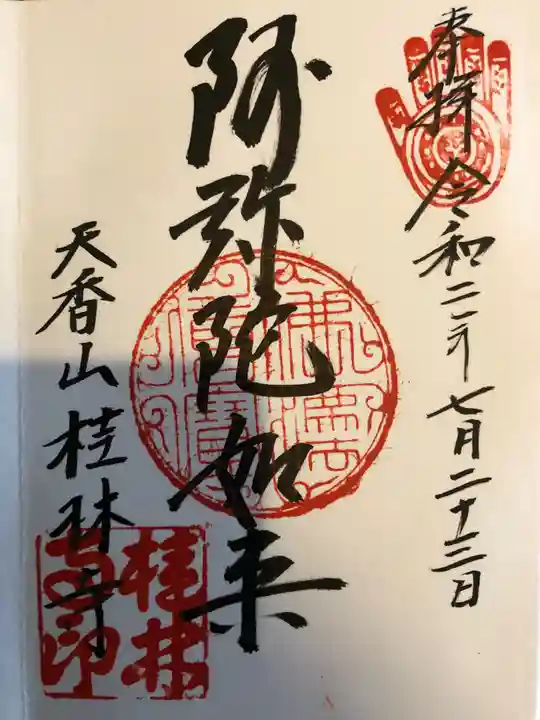 奉拝 令和二年七月二十三日
阿弥陀如来
天香山桂林寺
佛法僧寳
桂林寺印